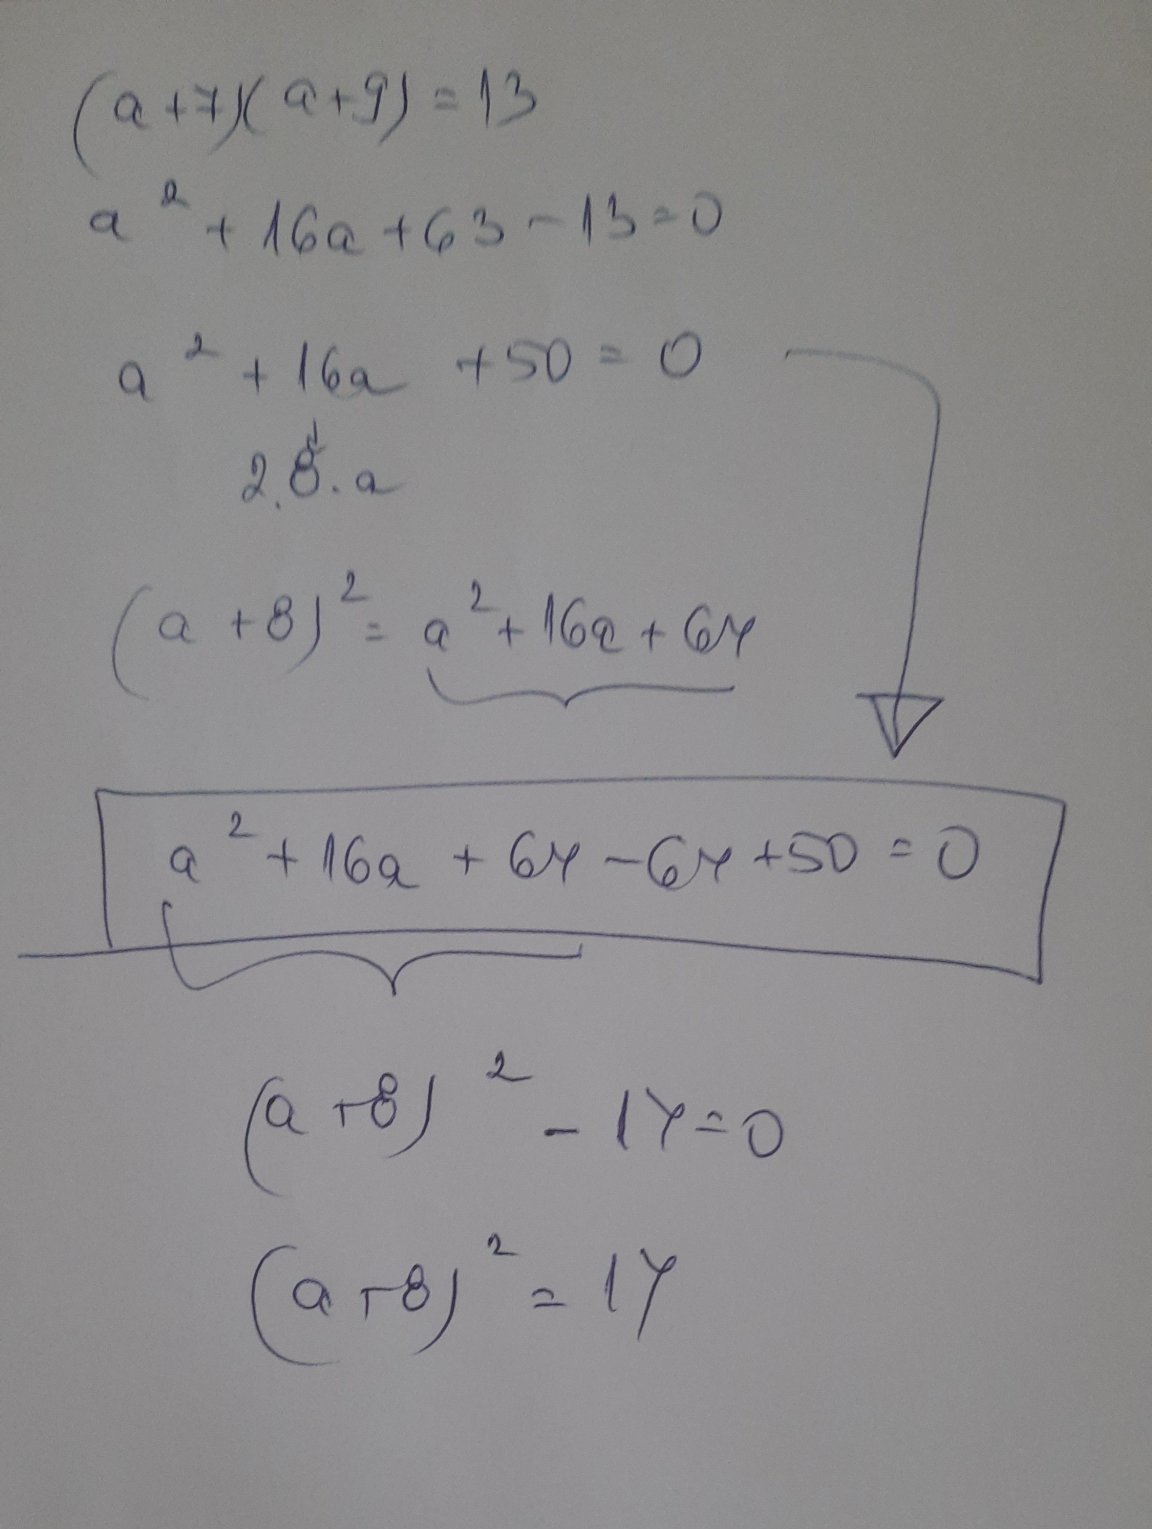 (a+7)(a+9)=13
a²+16a+63-13=0
a²+16a+50=0
2.8.a
(a+8)²=a²+16a+64
a²+16a+64-64+50=0
(a+8)²-14=0
(a+8)²=14